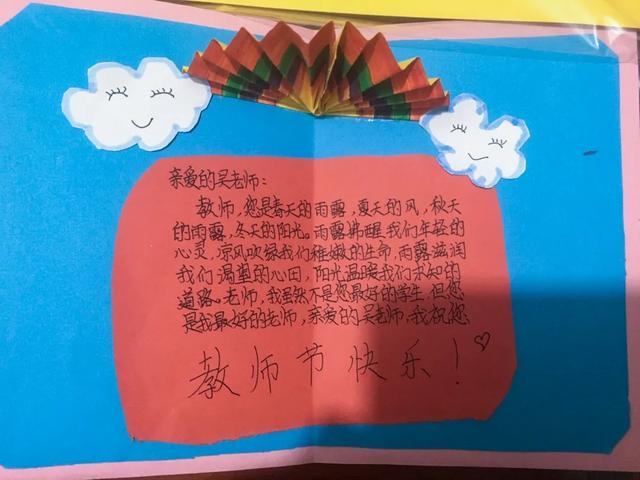 亲爱的吴老师：
教师，您是春天的雨露，夏天的风，秋天
的雨露，冬天的阳光。雨露拂醒我们年轻的
心灵，凉风吹绿我们稚嫩的生命，雨露滋润
我们渴望的心田，阳光温暖我们求知的
道路。老师，我虽然不是您最好的学生，但您
是我最好的老师，亲爱的吴老师，我祝您
教师节快乐！♡